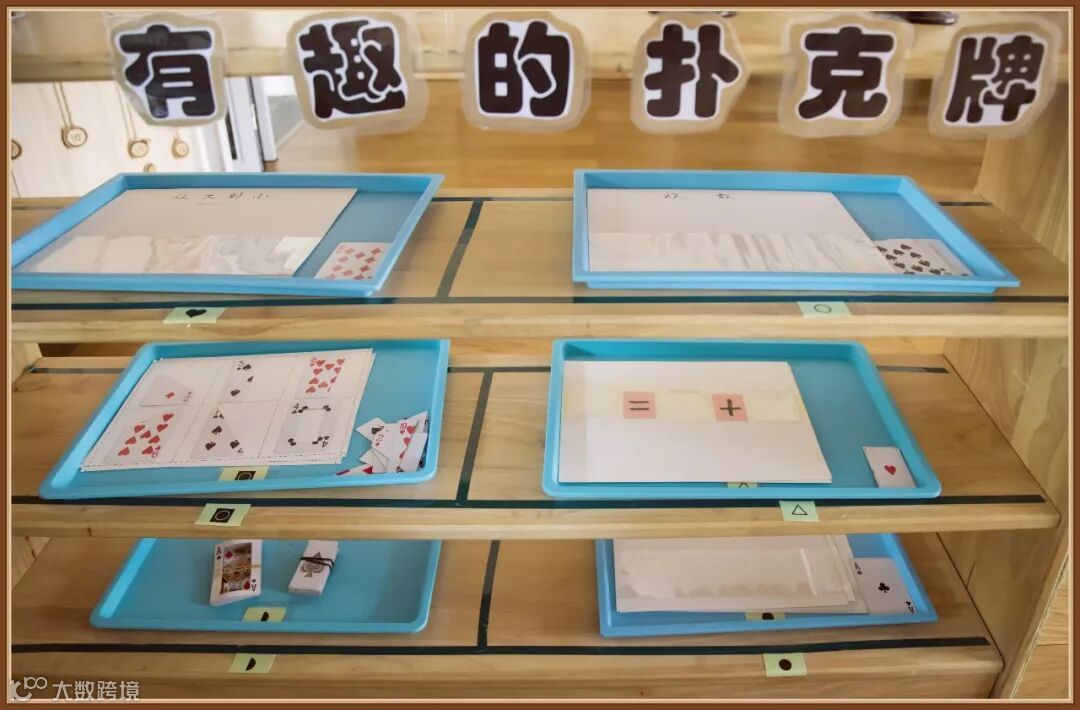 有趣的扑克牌
从大到小
双数
= +
A
大数跨境